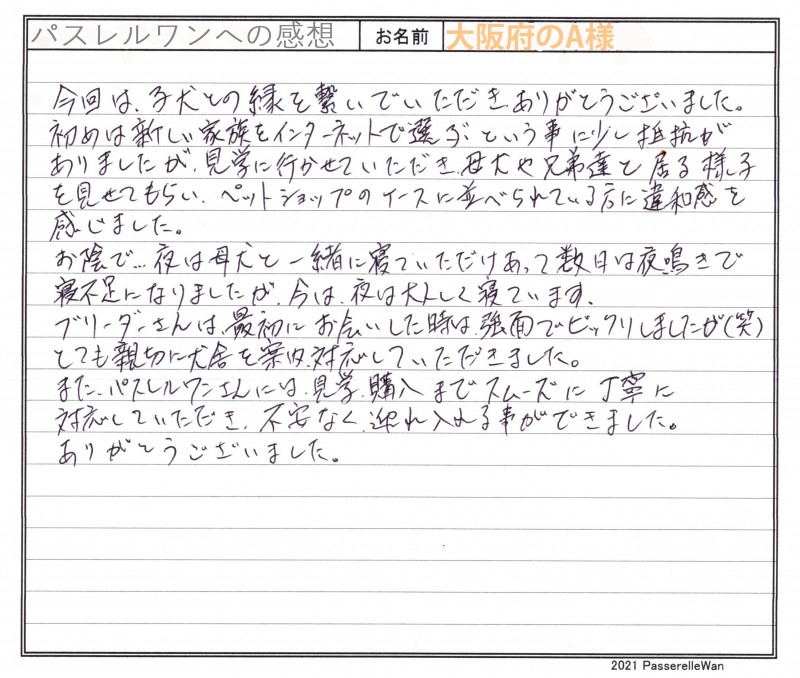 パスレルワンへの感想 お名前 大阪府のA様
今回は、子犬との縁を繋いでいただき、ありがとうございました。
初めは新しい家族をインターネットで選ぶという事に少し抵抗が
ありましたが、見学に行かせていただき、母犬や兄弟達と居る様子
を見せてもらい、ペットショップのケースに並べられている方に違和感を
感じました。
お陰で…夜は母犬と一緒に寝ていただけあって数日は夜鳴きで
寝不足になりましたが、今は、夜は大人しく寝ています。
ブリーダーさんは、最初にお会いした時は、強面でビックリしましたが(笑)
とても親切に犬舎を案内、対応していただきました。
また、パスレルワンさんには、見学、購入までスムーズに丁寧に
対応していただき、不安なく、迎れ入れる事ができました。
ありがとうございました。
2021 PasserelleWan